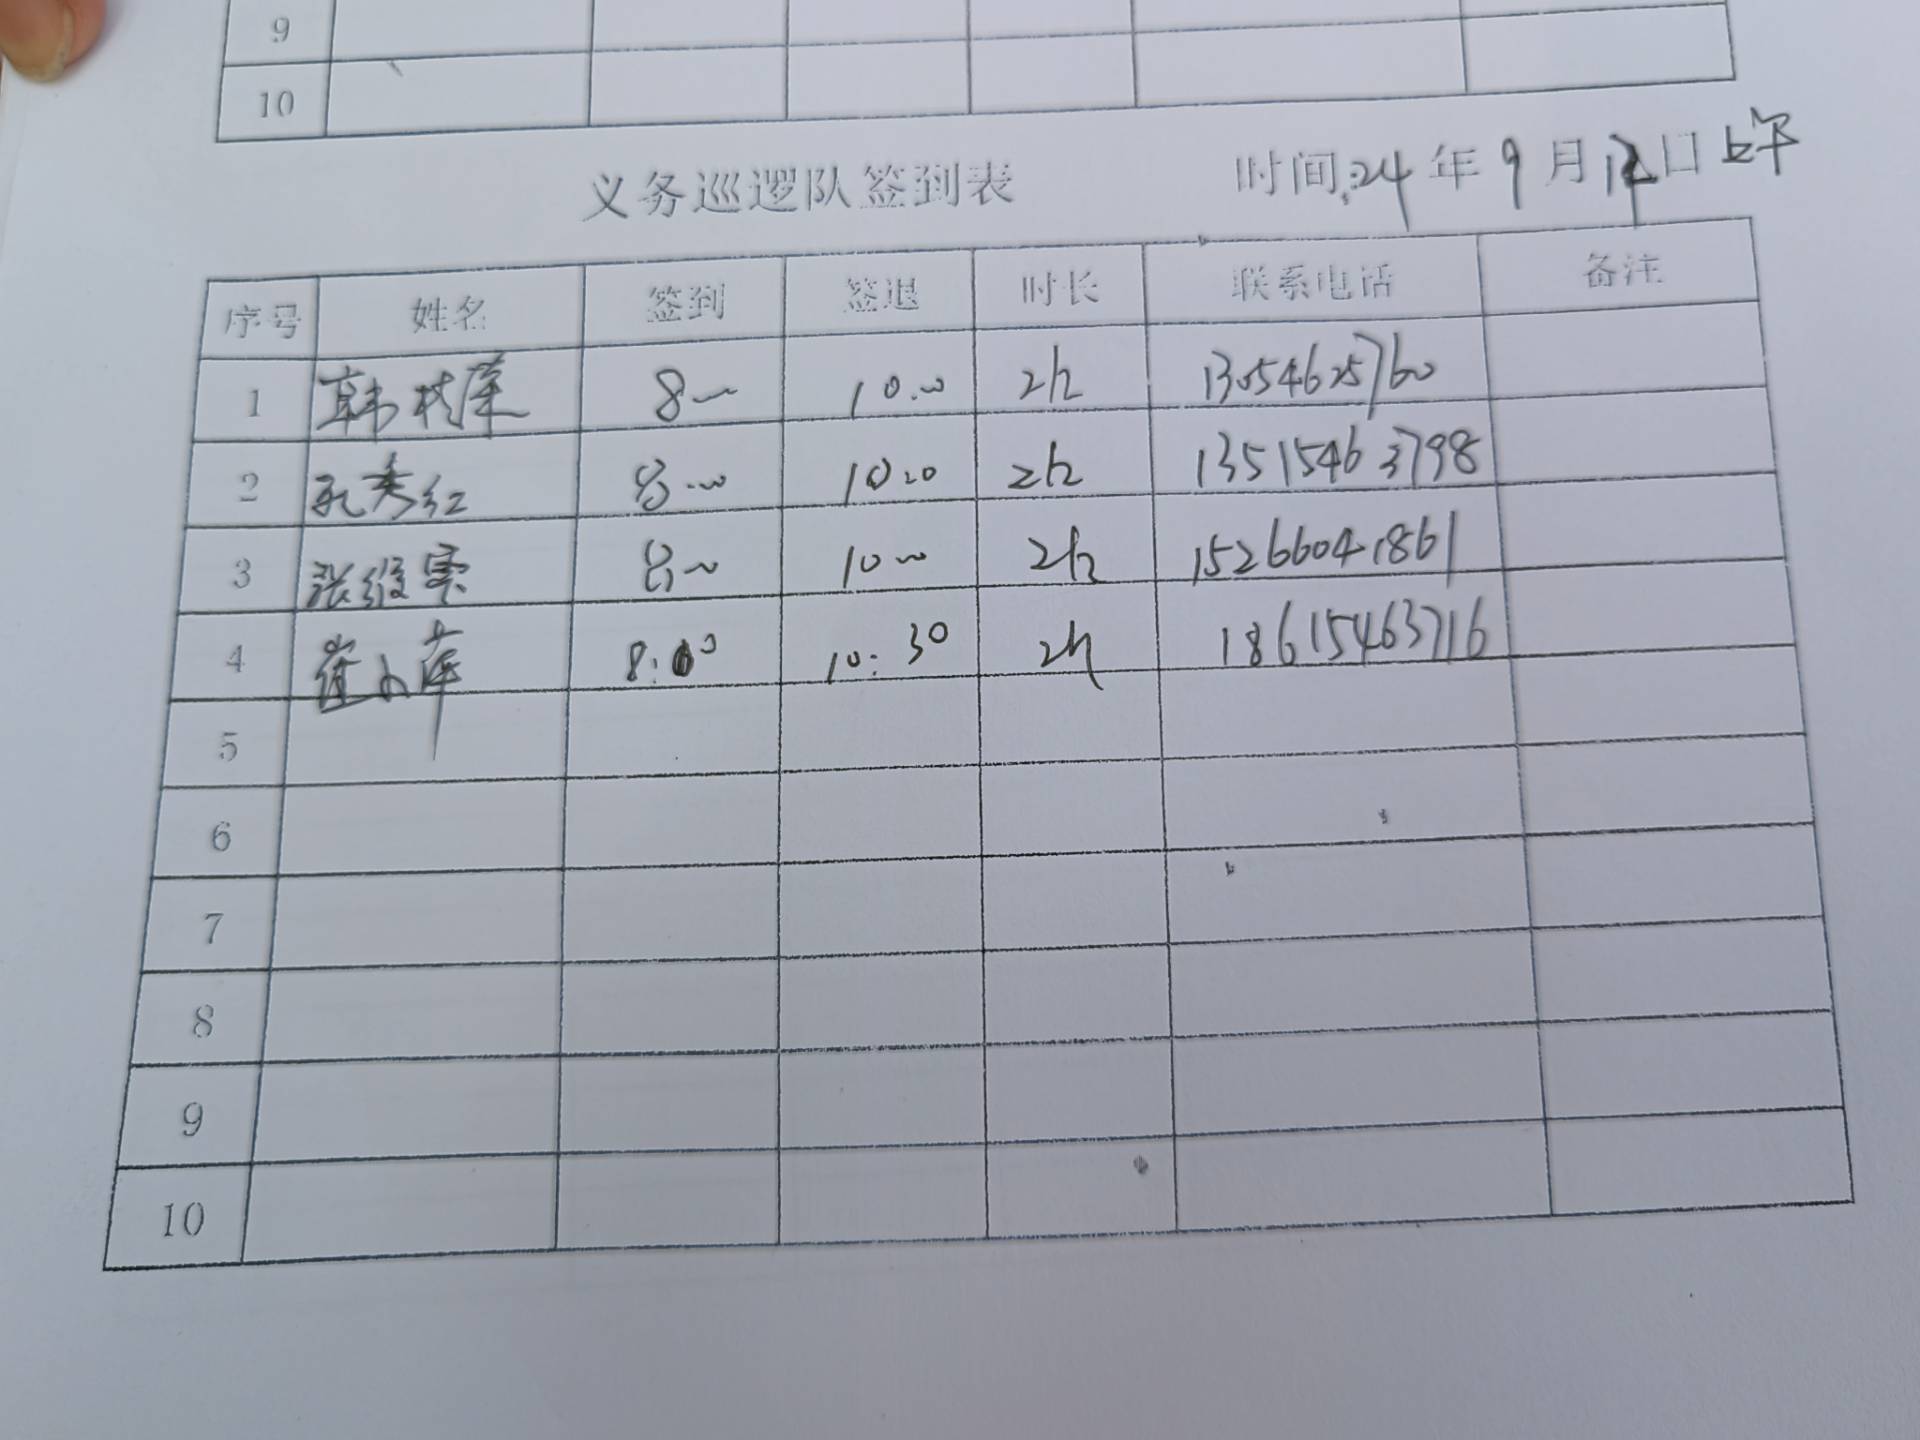 9
10
义务巡逻队签到表 时间:24年9月12日上午
序号 姓名 签到 签退 时长 联系电话 备注
1 韩桂莲 8:00 10:00 2h 13054625760
2 孔秀红 8:00 10:00 2h 13515463798
3 张 8:00 10:00 2h 15266041861
4 崔小萍 8:00 10:30 2h 18615463716
5
6
7
8
9
10